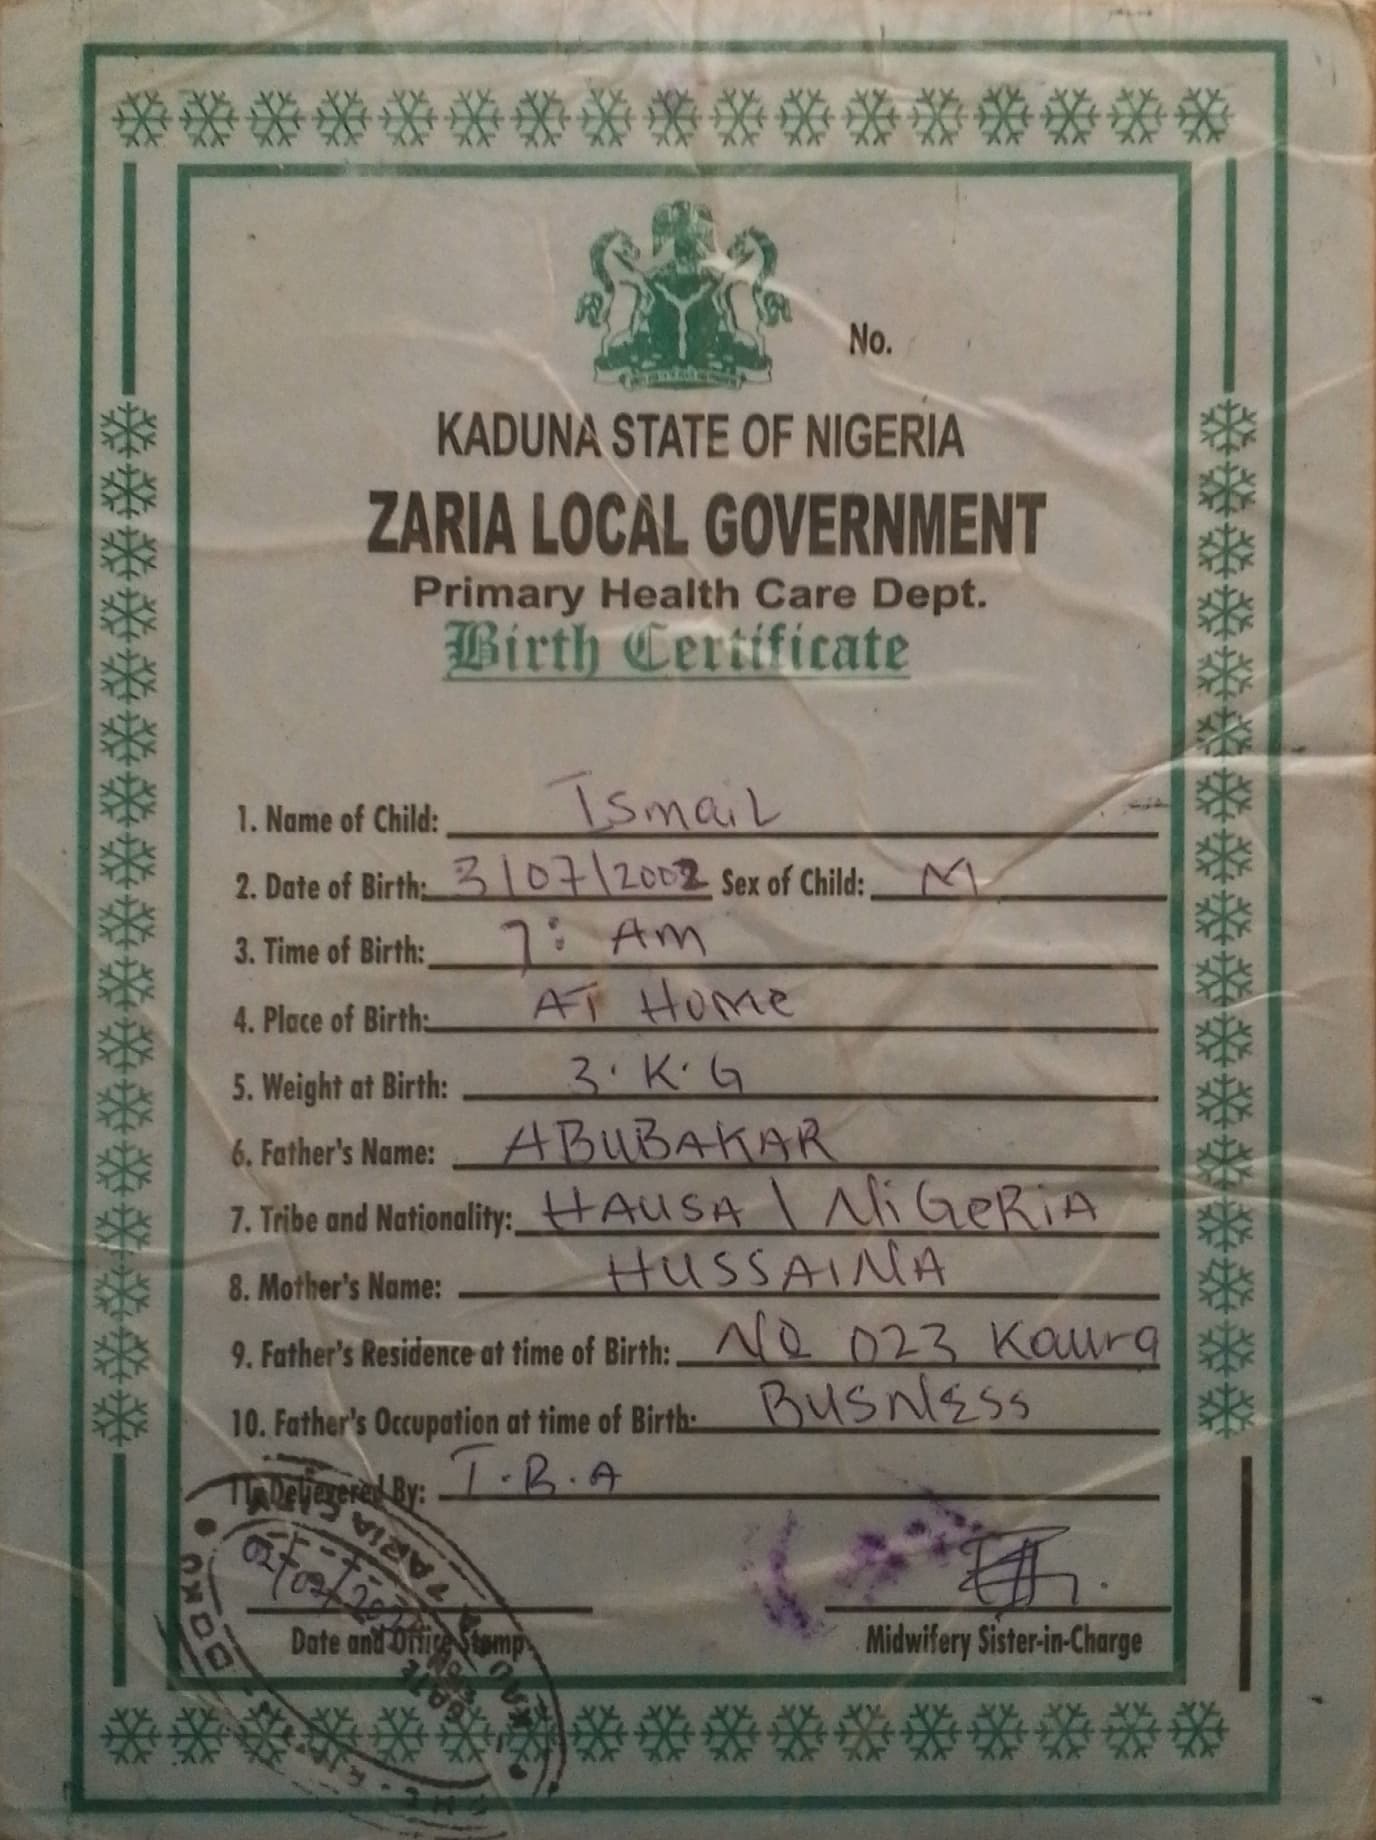 No.
KADUNA STATE OF NIGERIA
ZARIA LOCAL GOVERNMENT
Primary Health Care Dept.
Birth Certificate
1. Name of Child: Ismail
2. Date of Birth: 3/07/2002 Sex of Child: M
3. Time of Birth: 7: AM
4. Place of Birth: AT HOME
5. Weight at Birth: 3.K.G
6. Father's Name: ABUBAKAR
7. Tribe and Nationality: HAUSA / NIGERIA
8. Mother's Name: HUSSAINA
9. Father's Residence at time of Birth: NO 023 Kaura
10. Father's Occupation at time of Birth: BUSNESS
11. Delievered By: T.B.A
Date and Office Stamp
Midwifery Sister-in-Charge